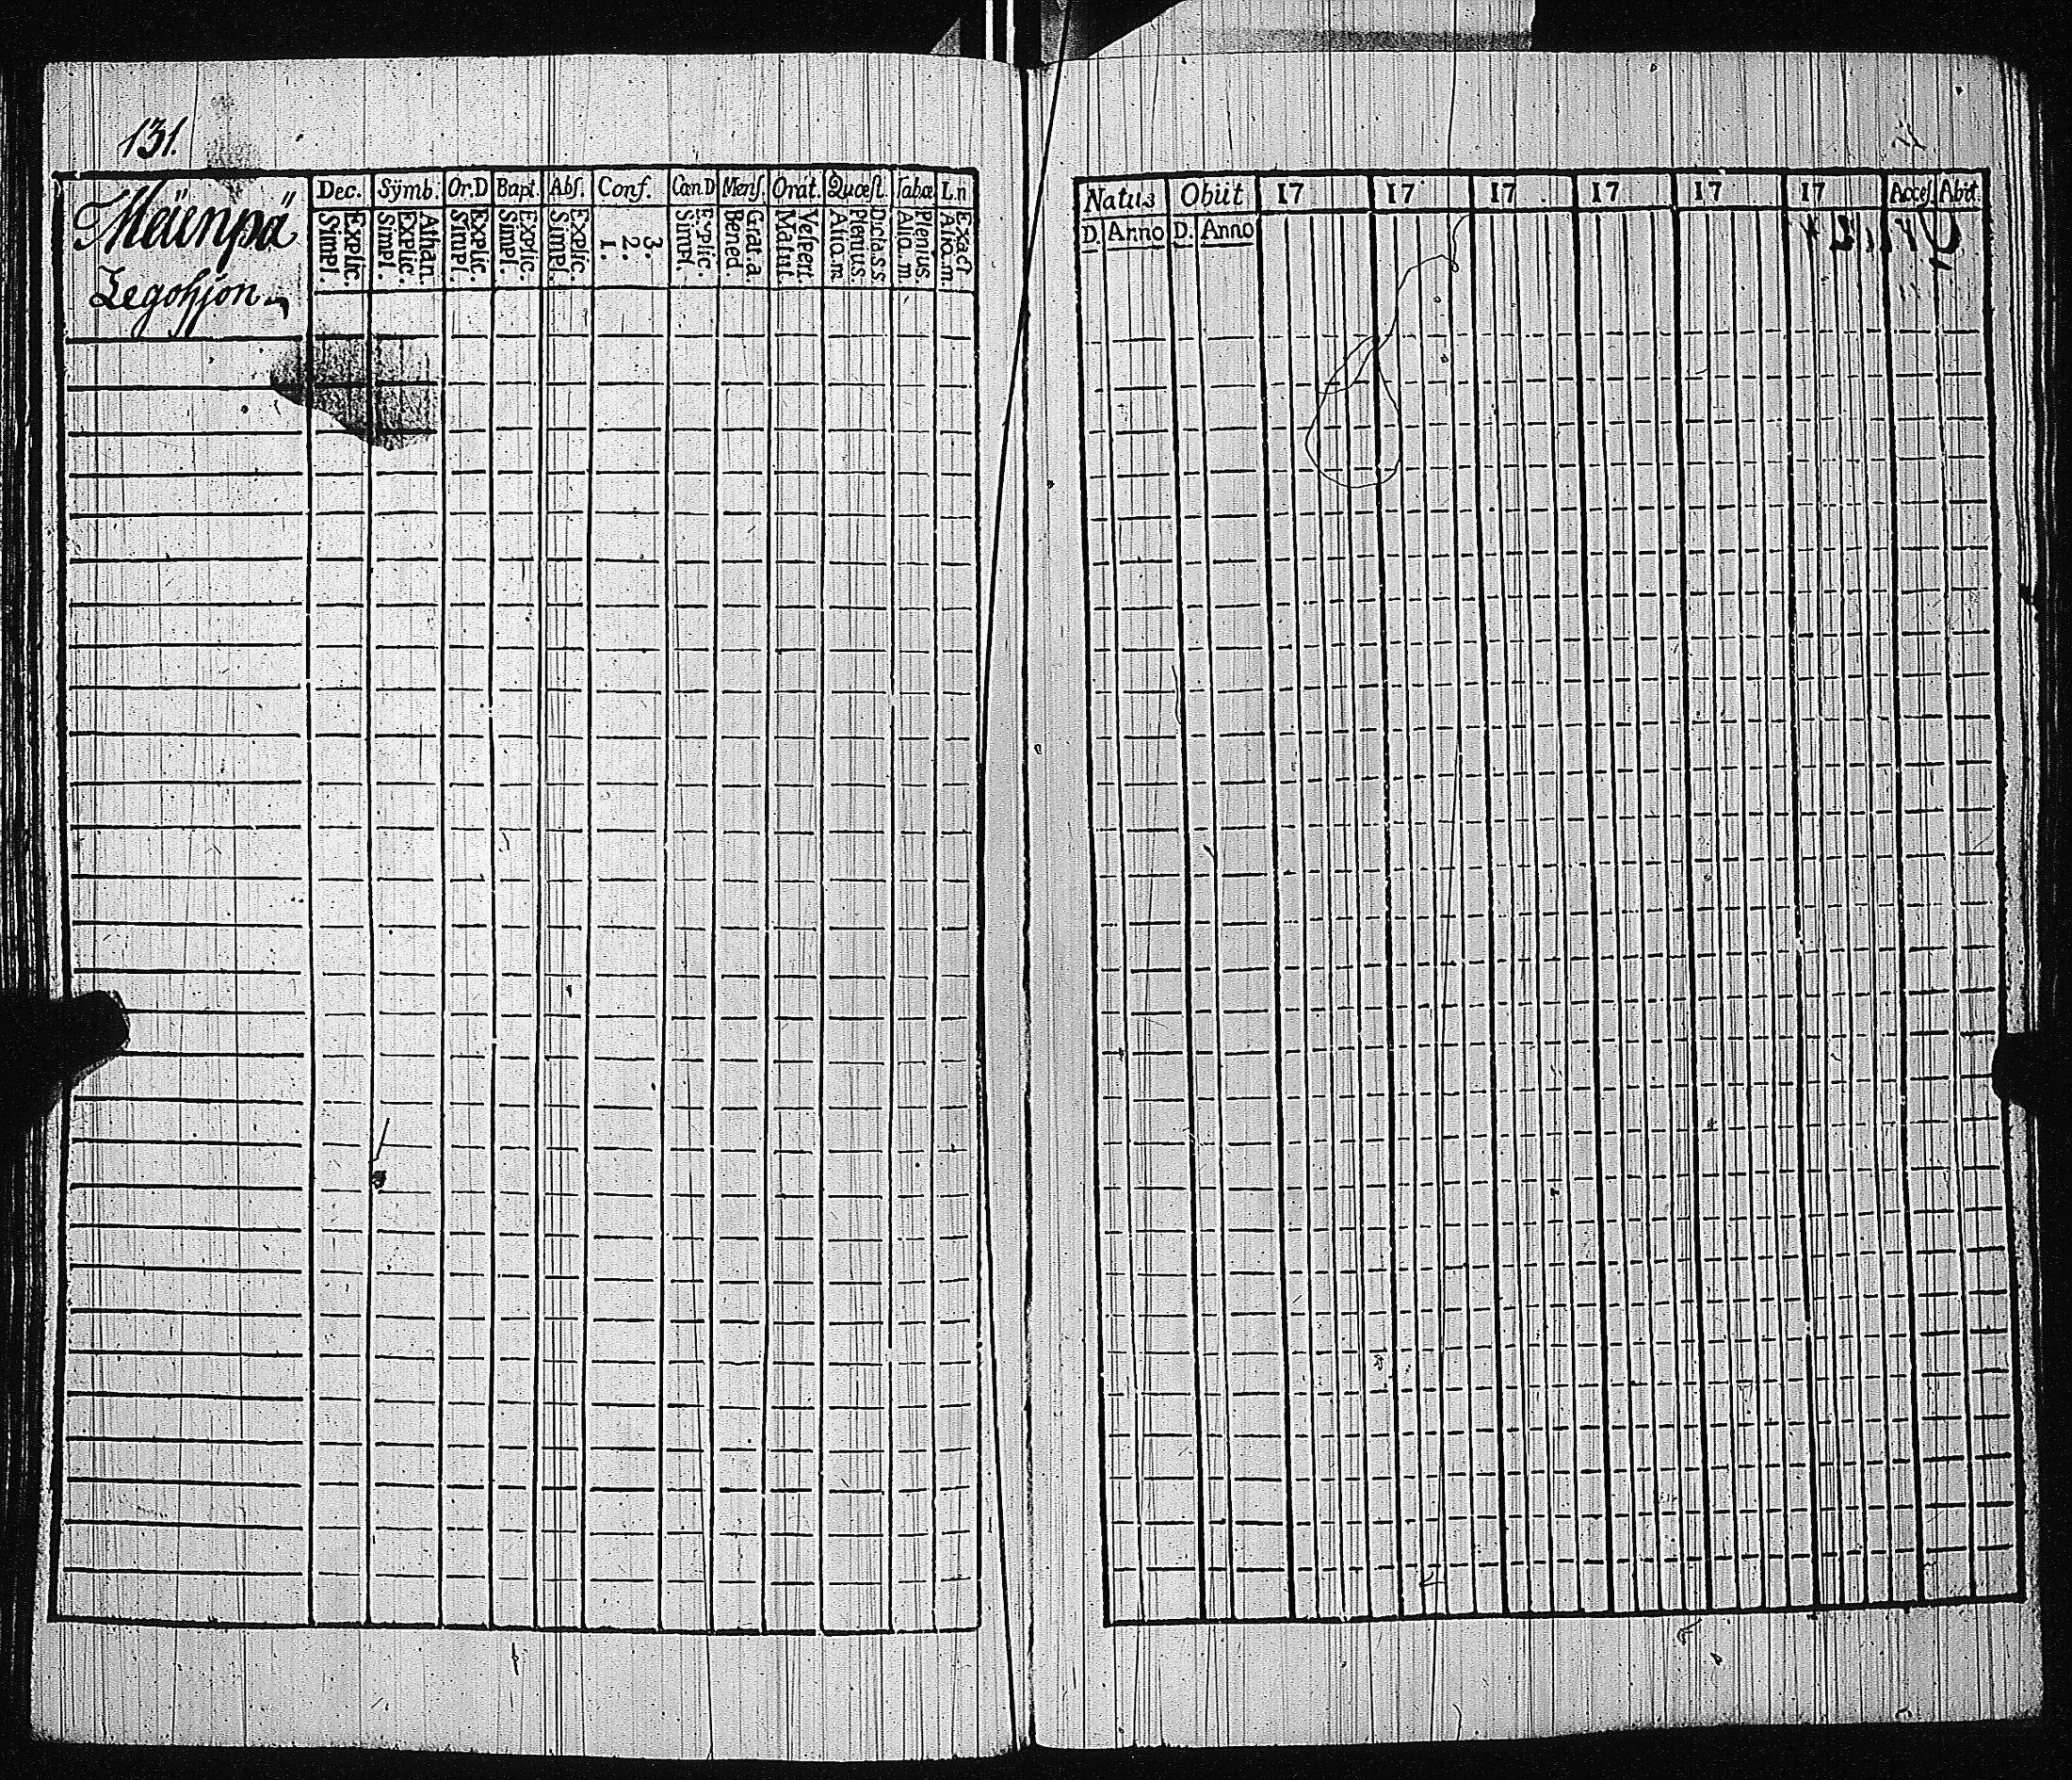 131.
Mäenpä
Legohjon
Dec. Symb. Or.D Bapt. Abs. Conf. Can D Mens. Orat. Quæst. Tabæ Ln
Simpl. Explic. Simpl. Explic. Athan. Simpl. Explic. Simpl. Explic. Simpl. Explic. 1. 2. 3. Simpl. Explic. Bened Grat.a. Matut. Vespert. Aliq.m Plenius. Dicta s.s Aliq.m. Plenius. Aliq.m. Exact
Natus Obiit 17 17 17 17 17 17 Acces. Abit.
D. Anno D. Anno